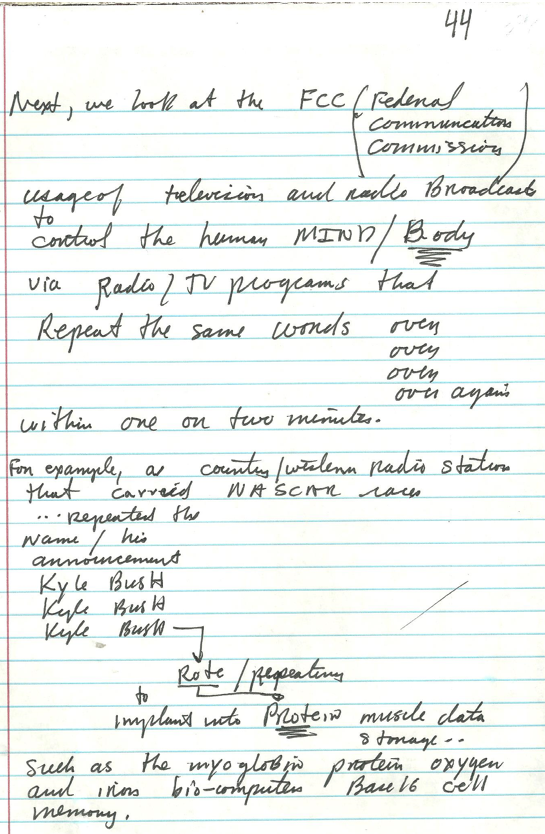 44
Next, we look at the FCC (Federal
Communcation
Commission)
usage of television and radio Broadcasts
to
control the human MIND/Body
via Radio/TV programs that
Repeat the same words over
over
over
over again
within one or two minutes.
For example, a country/western radio station
that carried NASCAR races
... repeated the
name/his
announcement
Kyle BusH
Kyle BusH
Kyle BusH
Rote/repeating
to
implant into Protein muscle data
storage..
such as the myoglobin protein oxygen
and iron bio-computer Base 16 cell
memory.